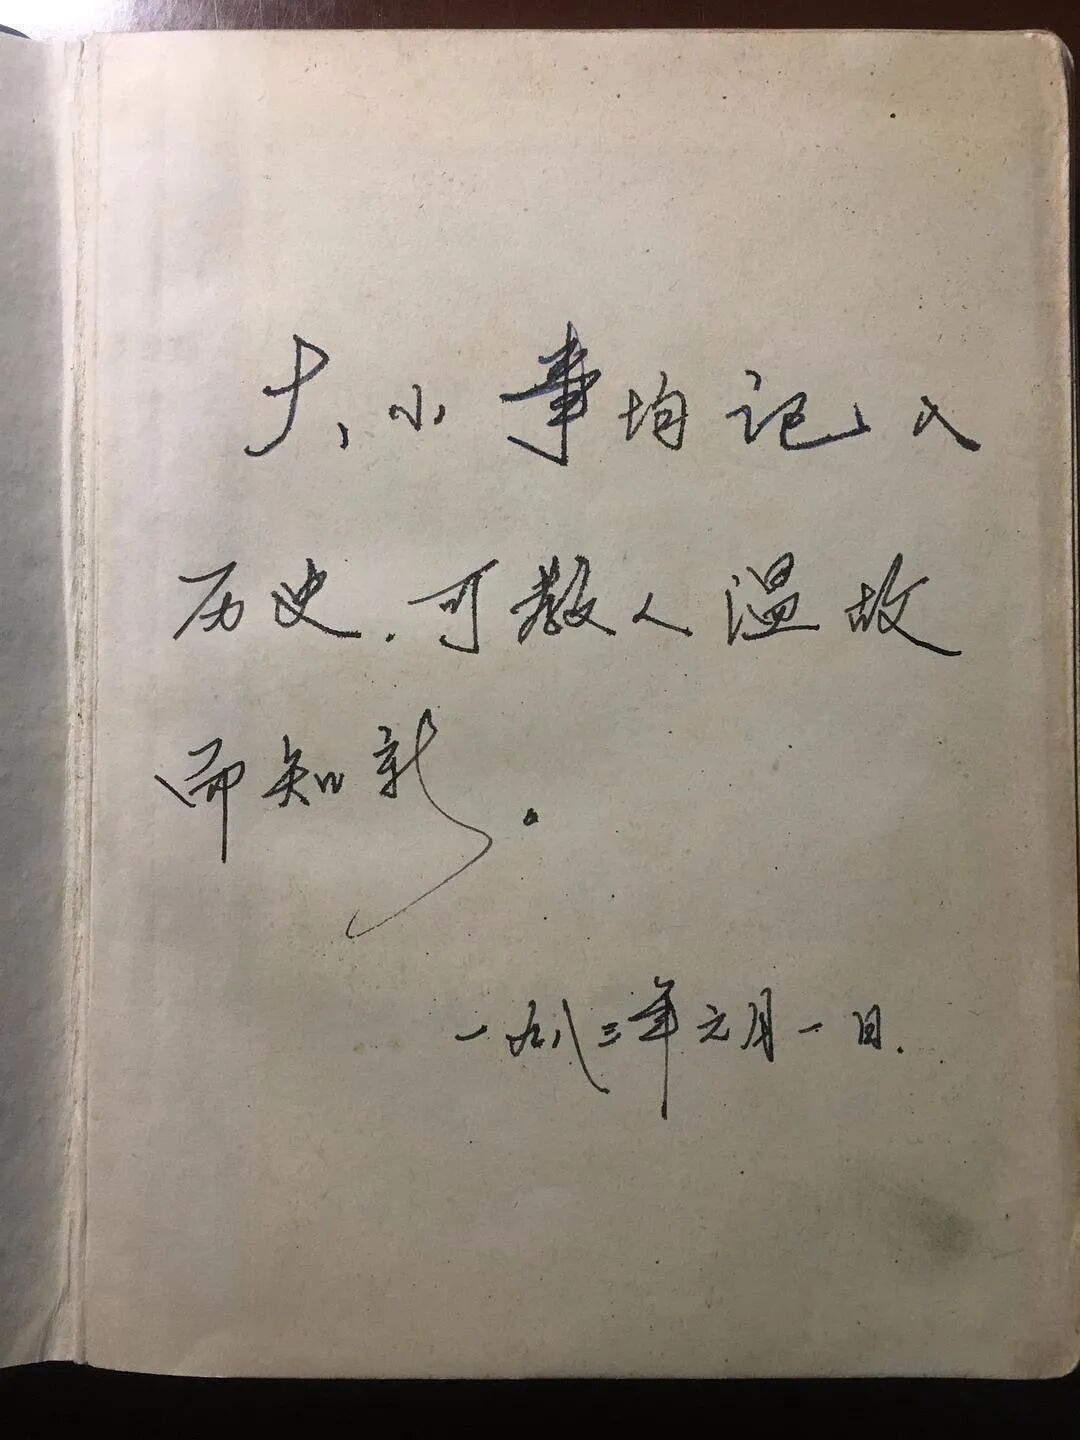 大小事均记入
历史.可教人温故
而知新.
一九八三年元月一日.